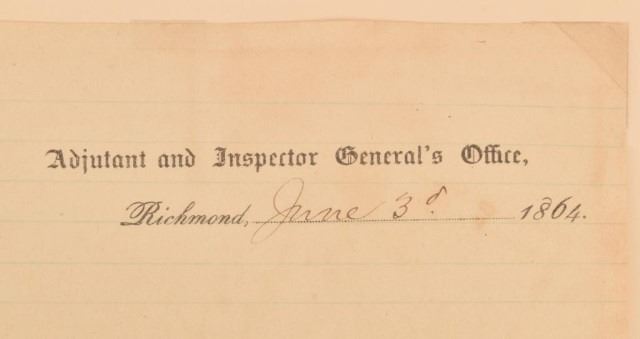 Adjutant and Inspector General's Office,
Richmond, June 3d. 1864.